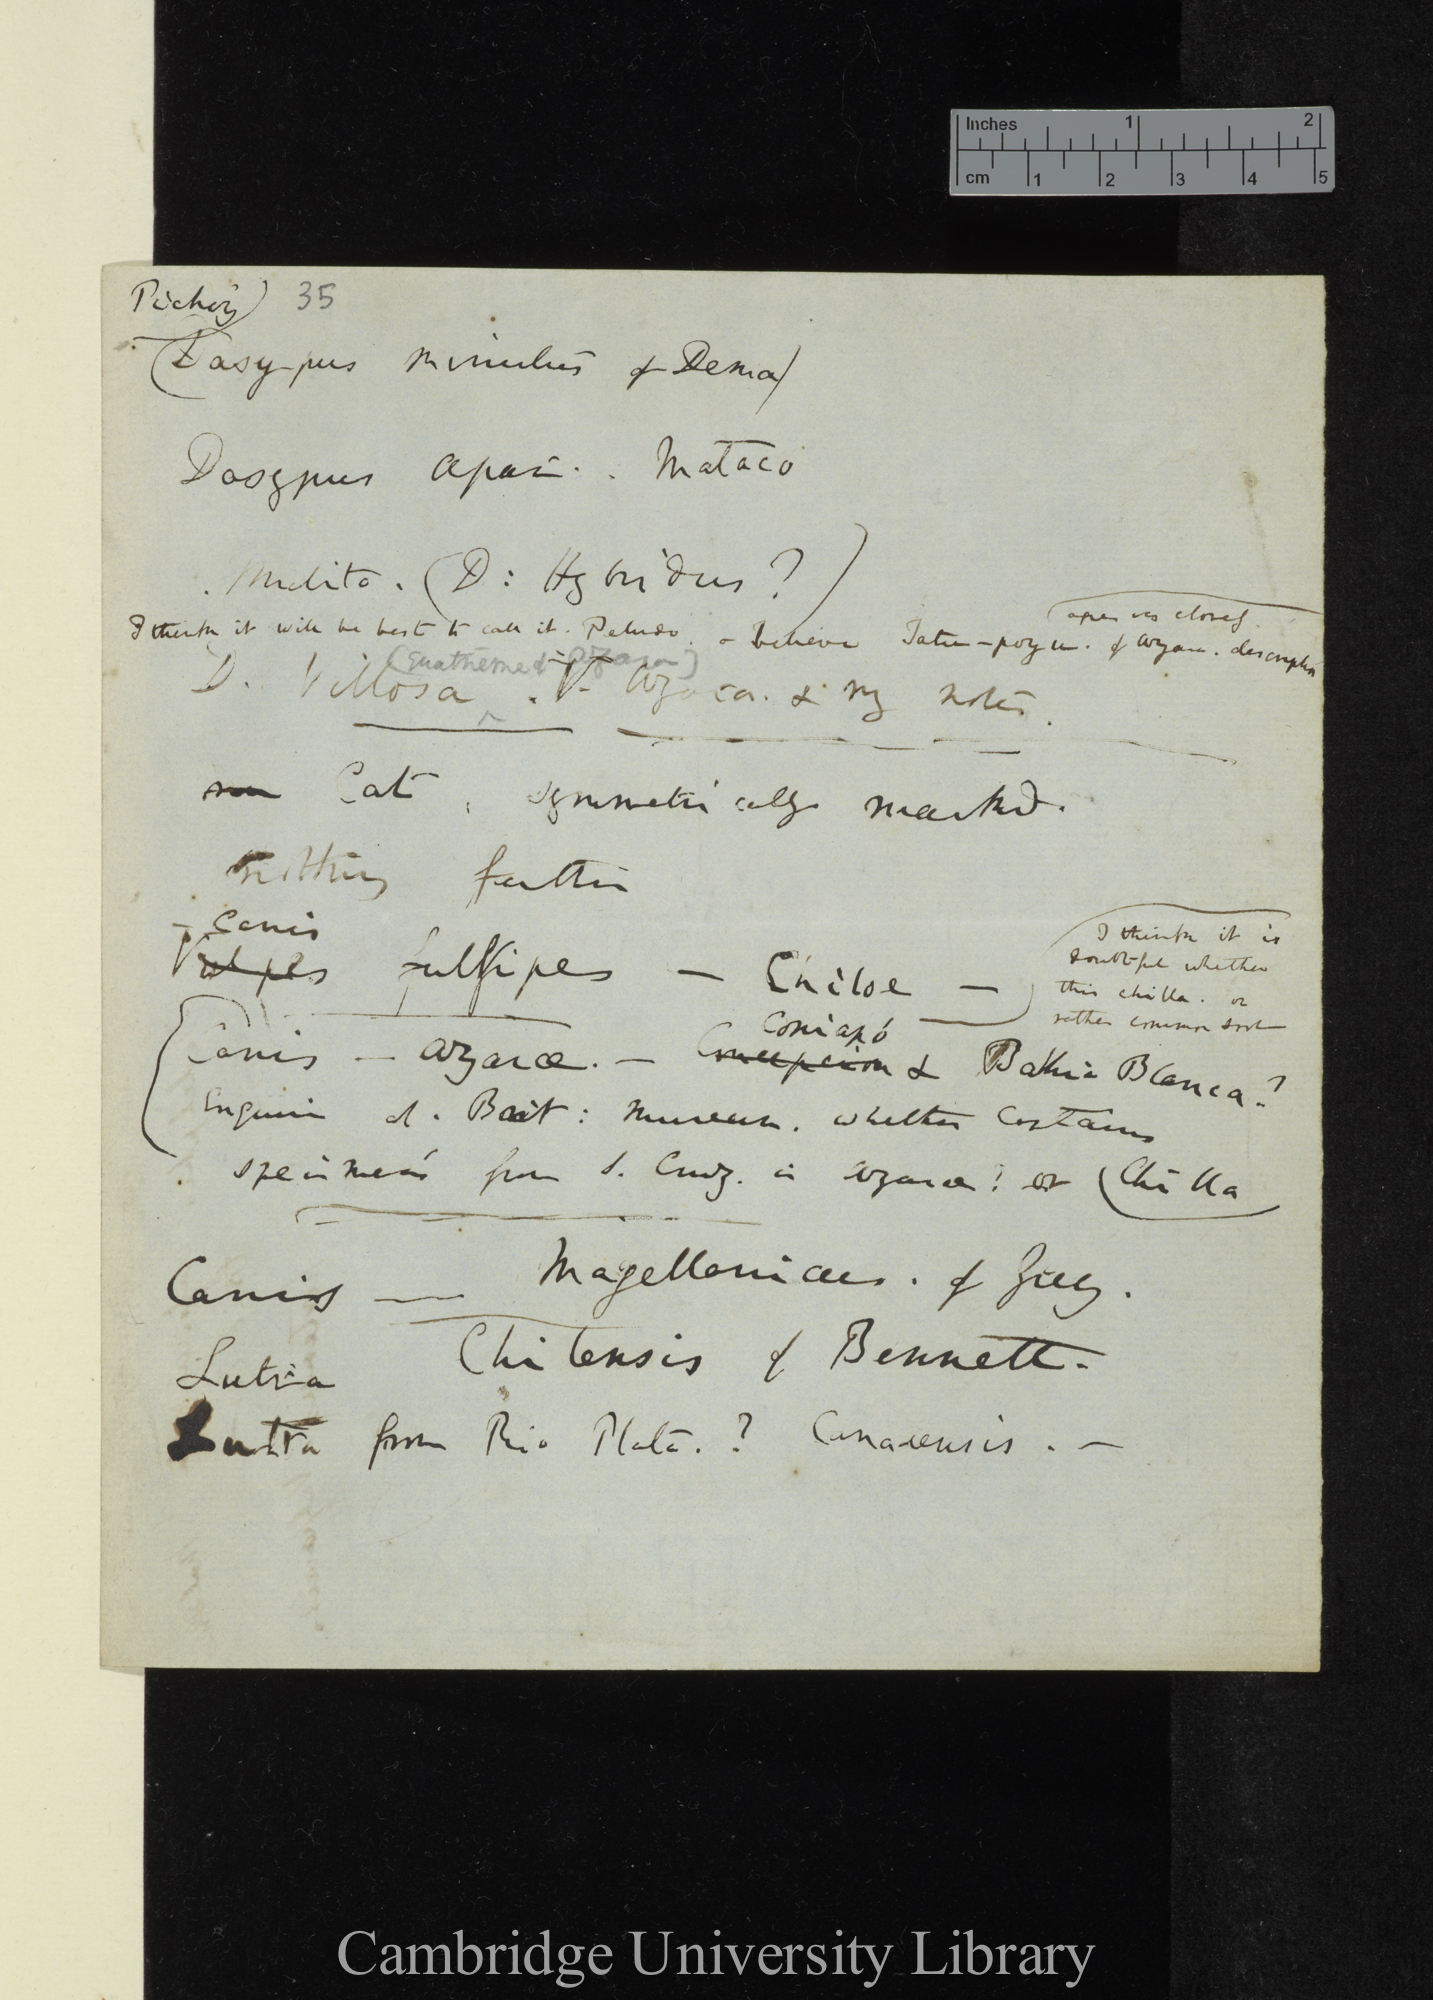 Inches 1 2
cm 1 2 3 4 5
Pichiy) 35
(Dasypus minutus of Desma)
Dasypus Apar. . Mataco
. Mulita. (D: Hybridus?)
I think it will be best to call it. Peludo. - believe Tatu-poyu. of Azara. description
agrees closely
(quatrieme de Azara)
D. Villosa . V. Azara. & my notes.
Cat, symmetrically marked.
nothing further
- Canis
Vulpes fulfipes — Chiloe —
I think it is
doubtful whether
this chilla. or
rather common sort
Copiapò
(Canis — Azarae. — Concepcion & Bahia Blanca?
Enquire at. Brit: Museum. whether contains
specimens from S. Cruz. is Azarae? or (Chilla
Canis — Magellanicus. of Grey.
Lutra Chilensis of Bennett.
Lutra from Rio Plata.? Canadensis. —
Cambridge University Library